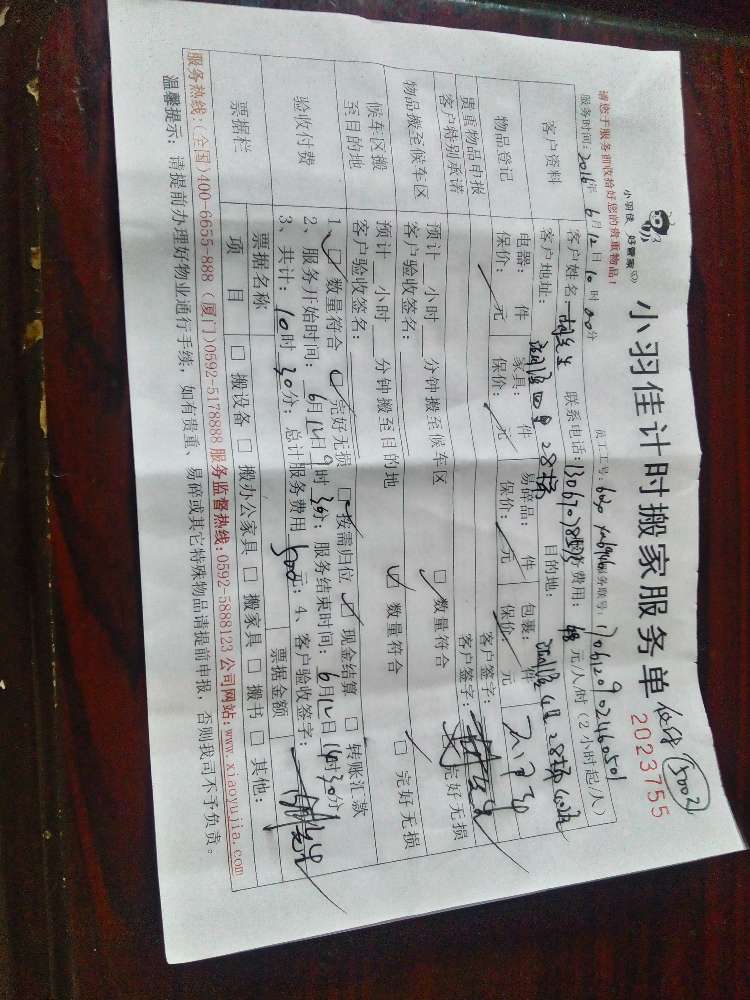 小羽佳 好管家
小羽佳计时搬家服务单
2023755
请您于服务前收拾好您的贵重物品!
服务时间:2016年6月12日10时00分 员工工号: 服务联号:
客户资料 客户姓名: 联系电话: 服务费用:68元/人/时(2小时起/人)
客户地址: 28栋 目的地:
物品登记 电器: 件 家具: 件 易碎品: 件 包裹: 件
保价: 元 保价: 元 保价: 元 保价: 元
贵重物品申报
客户特别承诺 客户签字:
物品搬至候车区 预计 小时 分钟搬至候车区 数量符合 完好无损
客户验收签名: 客户签字:
候车区搬至目的地 预计 小时 分钟搬至目的地 数量符合 完好无损
客户验收签名:
验收付费 1、数量符合 完好无损 按需归位 现金结算 转账汇款
2、服务开始时间:6月12日9时30分;服务结束时间:6月12日 时30分
3、共计:10时30分;总计服务费用500元;4、客户验收签字:
票据栏 票据名称 票据金额
项目 搬设备 搬办公家具 搬家具 搬书 其他:
服务热线:(全国)400-6655-888 (厦门)0592-5178888 服务监督热线:0592-5888123 公司网站:www.xiaoyujia.com
温馨提示:请提前办理好物业通行手续,如有贵重、易碎或其它特殊物品请提前申报,否则我司不予负责。